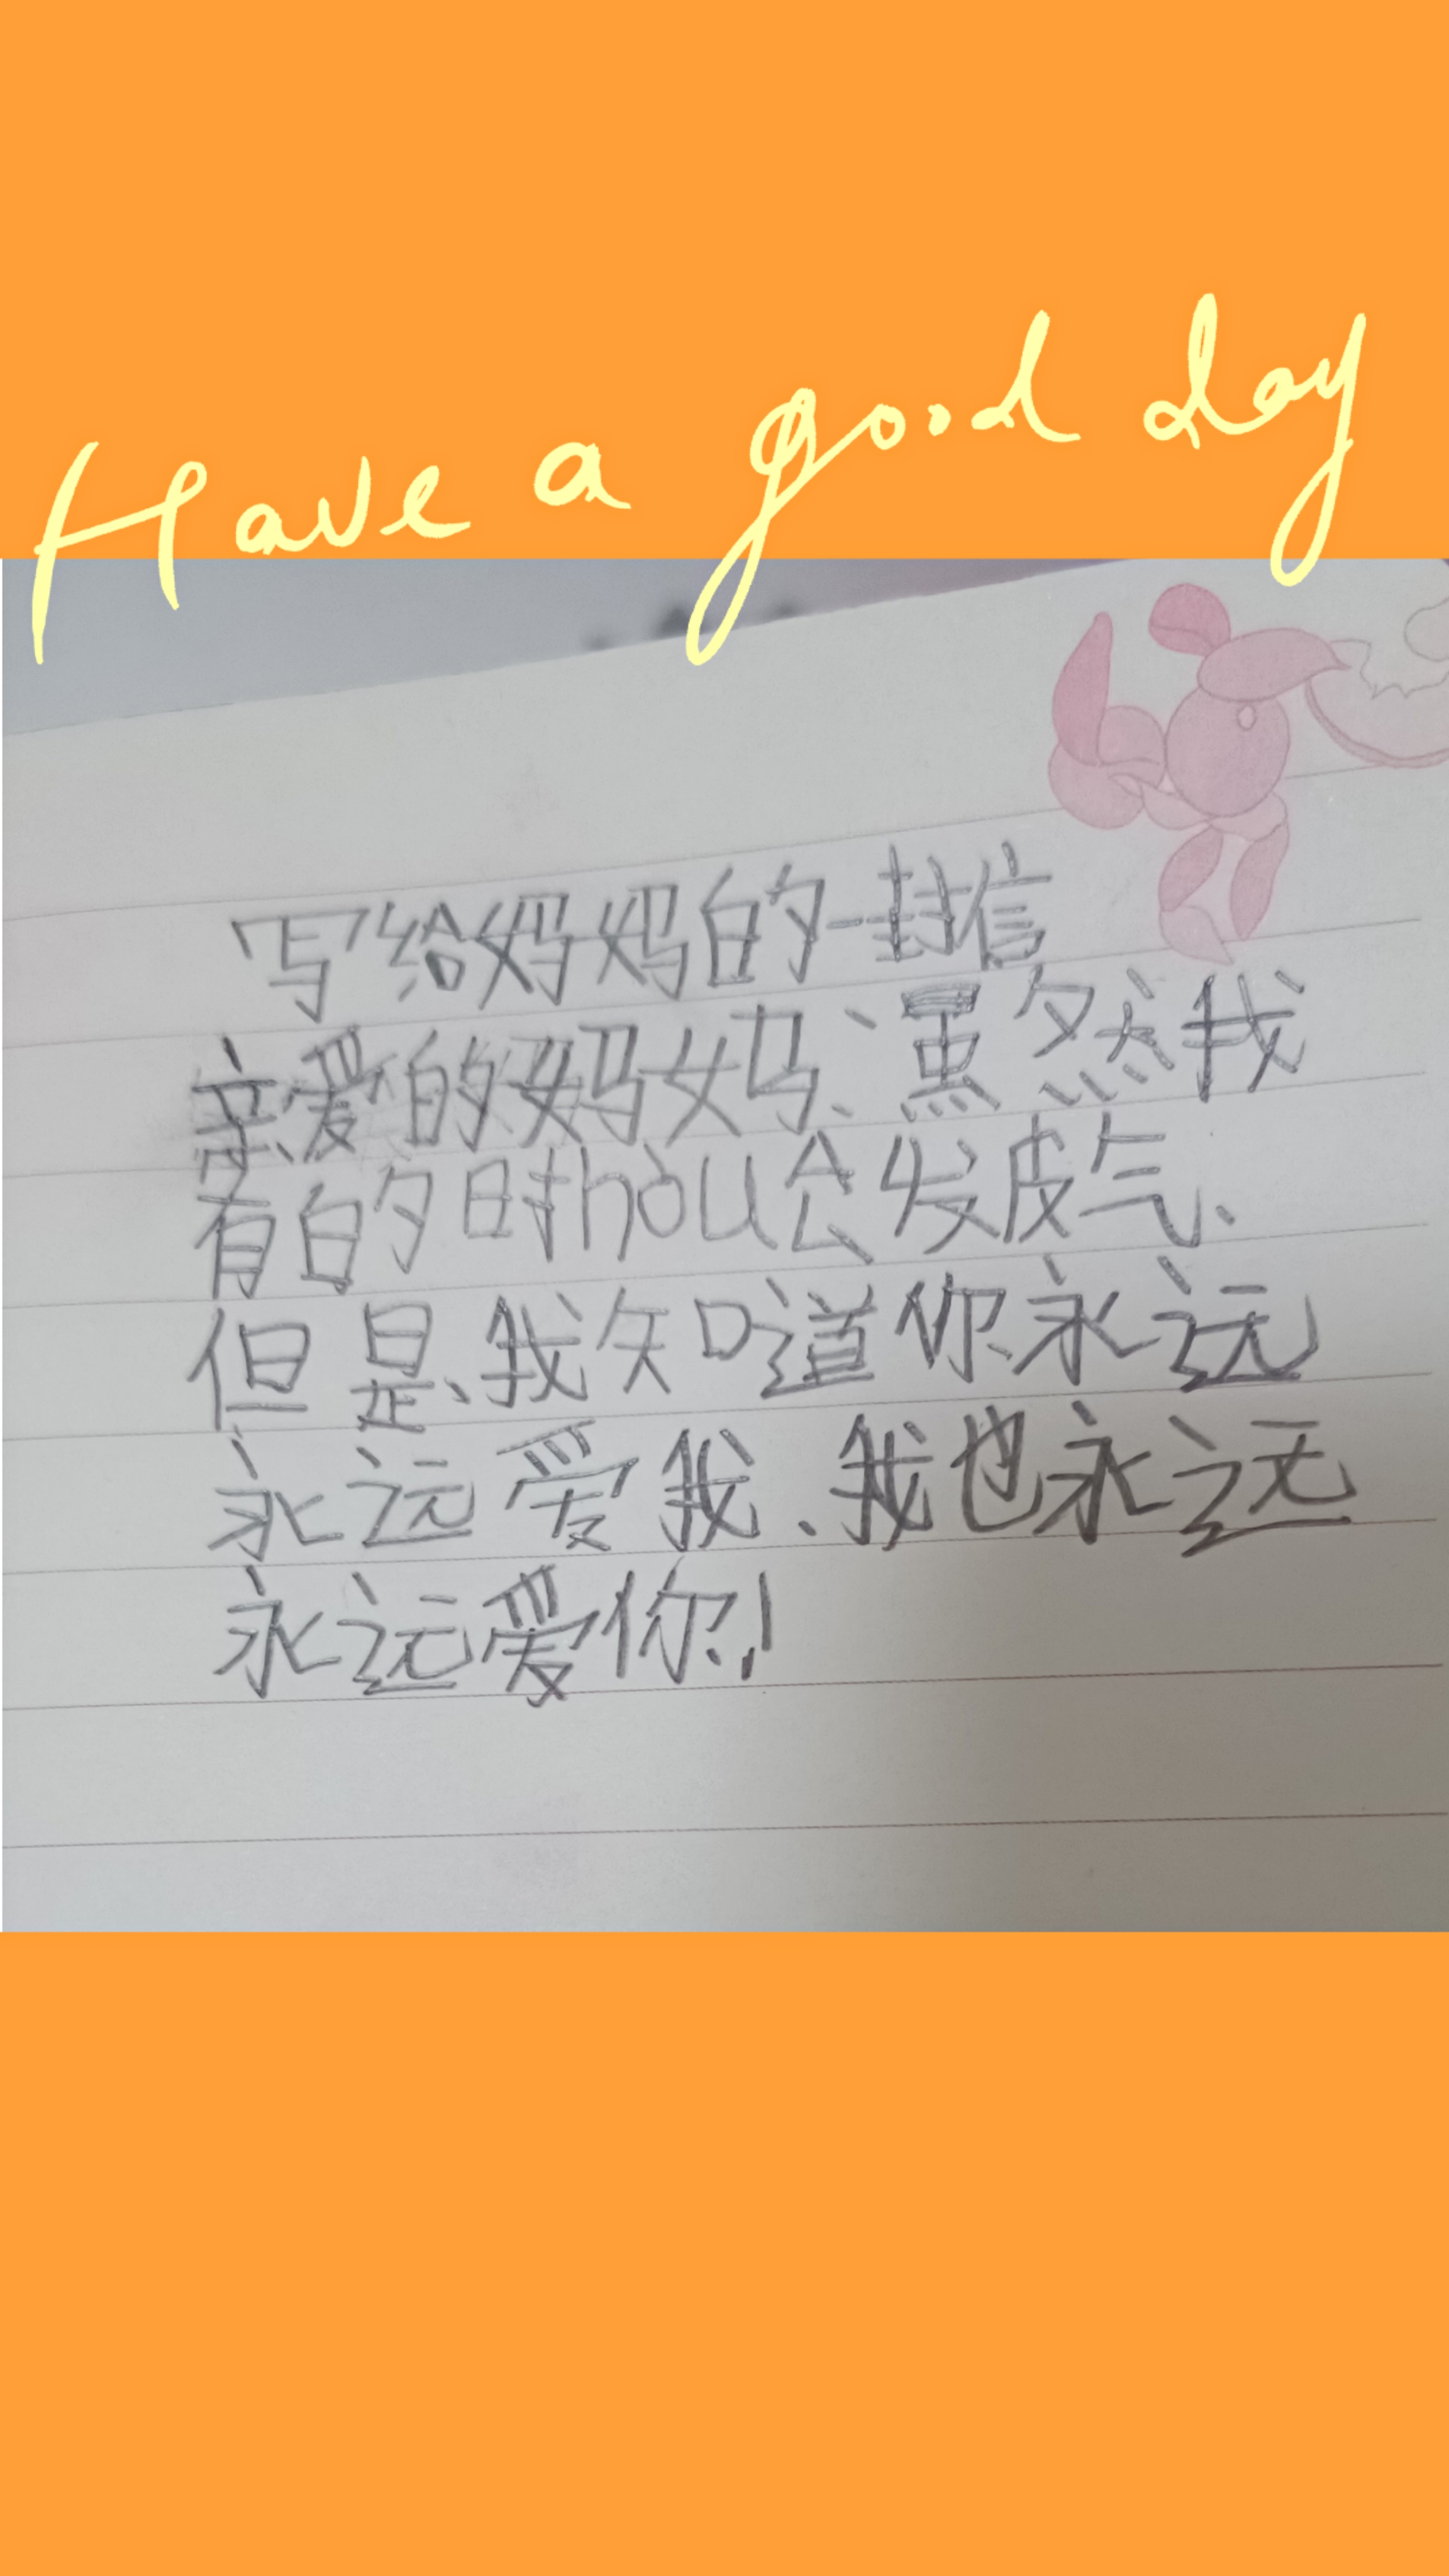 Have a good day
写给妈妈的一封信
亲爱的妈妈、虽然我
有的时hòu会发皮气、
但是、我知道你永远
永远爱我、我也永远
永远爱你!